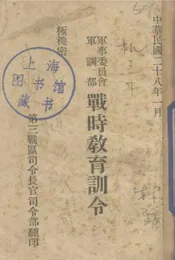 中華民國二十八年一月
軍事委員會
軍訓部
戰時教育訓令
極機密
第三戰區司令長官司令部翻印
上海
图书馆
藏书